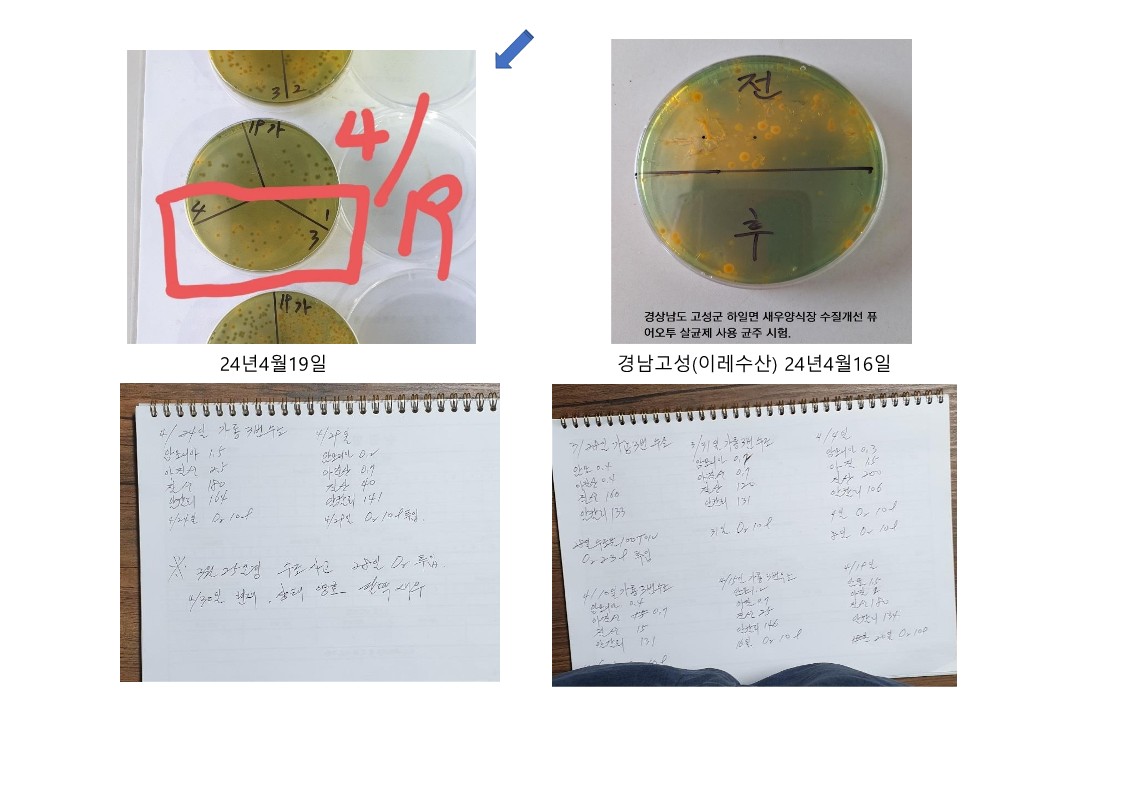 3 2
19가
4
1
3
19가
4/R
전
후
경상남도 고성군 하일면 새우양식장 수질개선 퓨
어오투 살균제 사용 균주 시험.
24년4월19일
경남고성(이레수산) 24년4월16일
4/24일 가동 3번 수조
암모니아 1.5
아질산 2.5
질산 180
알칼리 164
4/24일 O2 10l
4/29일
암모니아 0.2
아질산 0.9
질산 40
알칼리 141
4/29일 O2 10l 투입.
※ 3월 25일경 수조 사고 28일 O2 투입
4/30일 현재, 상태 양호
3/28일 가동 3번 수조
암모 0.4
질산 160
알칼리 133
O2 23l 투입
3/31일 가동 3번 수조
아질산 0.9
질산 120
알칼리 131
31일 O2 10l
4/4일
암모니아 0.3
아질 15
질산 200
알칼리 106
4일 O2 10l
8일 O2 10l
4/10일 가동 3번 수조
암모니아 0.4
아질산 0.9
질산 15
알칼리 131
4/15일 가동 3번 수조
아질산 0.9
질산 25
알칼리 146
16일 O2 10l
4/19일
암모 1.5
질산 180
알칼리 134
20일 O2 10l